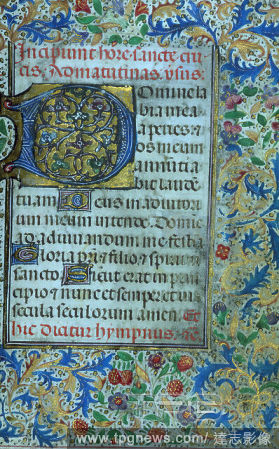 Incipiunt hore sancte cru
cis. Ad matutinas. v̄sus:
Domine la
bia mea
aperies. &
os meum
annūtia
bit laudē
tuam. Deus in adiutori
um meum intende. Domie
ad adiuvandum me festīa
Gloria pr̄i & filio & spiritui
sancto. Sicut erat in prin
cipio & nunc et semper et in
secula seculorum amen. Et
hic dicitur hympnus.
www.tpgnews.com/ 達志影像